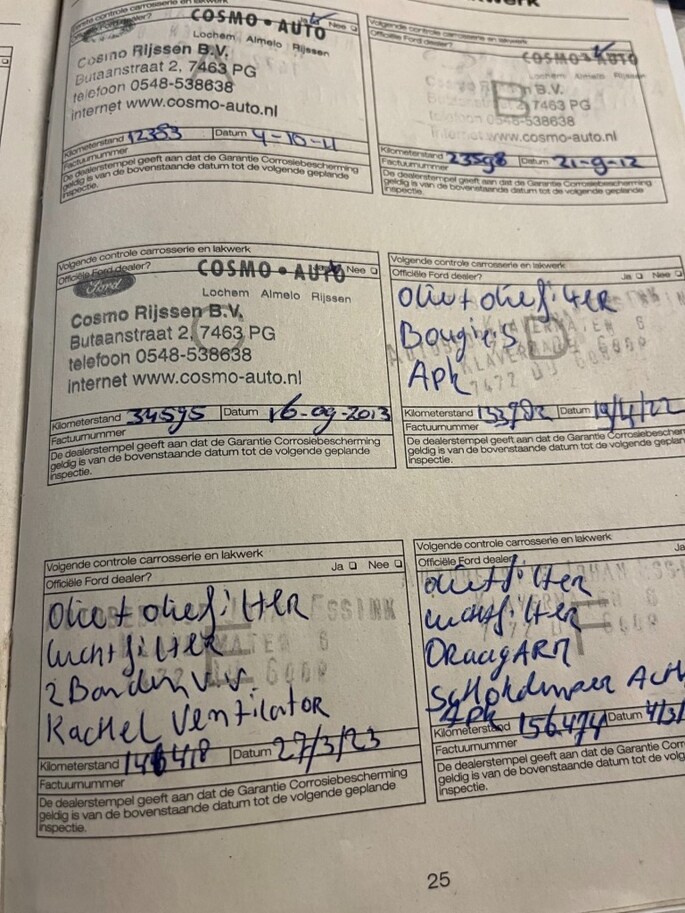 COSMO • AUTO
Nee
Lochem Almelo Rijssen
Cosmo Rijssen B.V.
Butaanstraat 2, 7463 PG
telefoon 0548-538638
internet www.cosmo-auto.nl
Kilometerstand 12353 Datum 4-10-11
Factuurnummer
De dealerstempel geeft aan dat de Garantie Corrosiebescherming
geldig is van de bovenstaande datum tot de volgende geplande
inspectie.
Volgende controle carrosserie en lakwerk
Officiële Ford dealer?
COSMO • AUTO
Lochem Almelo Rijssen
B.V.
7463 PG
telefoon 0548-538638
internet www.cosmo-auto.nl
Kilometerstand 23598 Datum 21-9-12
Factuurnummer
De dealerstempel geeft aan dat de Garantie Corrosiebescherming
geldig is van de bovenstaande datum tot de volgende geplande
inspectie.
Volgende controle carrosserie en lakwerk
Officiële Ford dealer?
COSMO • AUTO Nee
Ford
Lochem Almelo Rijssen
Cosmo Rijssen B.V.
Butaanstraat 2, 7463 PG
telefoon 0548-538638
internet www.cosmo-auto.nl
Kilometerstand 34595 Datum 16-09-2013
Factuurnummer
De dealerstempel geeft aan dat de Garantie Corrosiebescherming
geldig is van de bovenstaande datum tot de volgende geplande
inspectie.
Volgende controle carrosserie en lakwerk
Officiële Ford dealer? Ja Nee
Olie + oliefilter
Bougies
Apk
Kilometerstand Datum 19/4/22
Factuurnummer
De dealerstempel geeft aan dat de Garantie Corrosiebescher
geldig is van de bovenstaande datum tot de volgende geplan
inspectie.
Volgende controle carrosserie en lakwerk
Officiële Ford dealer? Ja Nee
Olie + oliefilter
luchtfilter
2 Banden V.V.
Kachel Ventilator
Kilometerstand Datum 27/3/23
Factuurnummer
De dealerstempel geeft aan dat de Garantie Corrosiebescherming
geldig is van de bovenstaande datum tot de volgende geplande
inspectie.
Volgende controle carrosserie en lakwerk
Officiële Ford dealer Ja
luchtfilter
DRaagARM
Apk
Kilometerstand 156.474 Datum 4/3/
Factuurnummer
De dealerstempel geeft aan dat de Garantie Corr
geldig is van de bovenstaande datum tot de volg
inspectie.
25